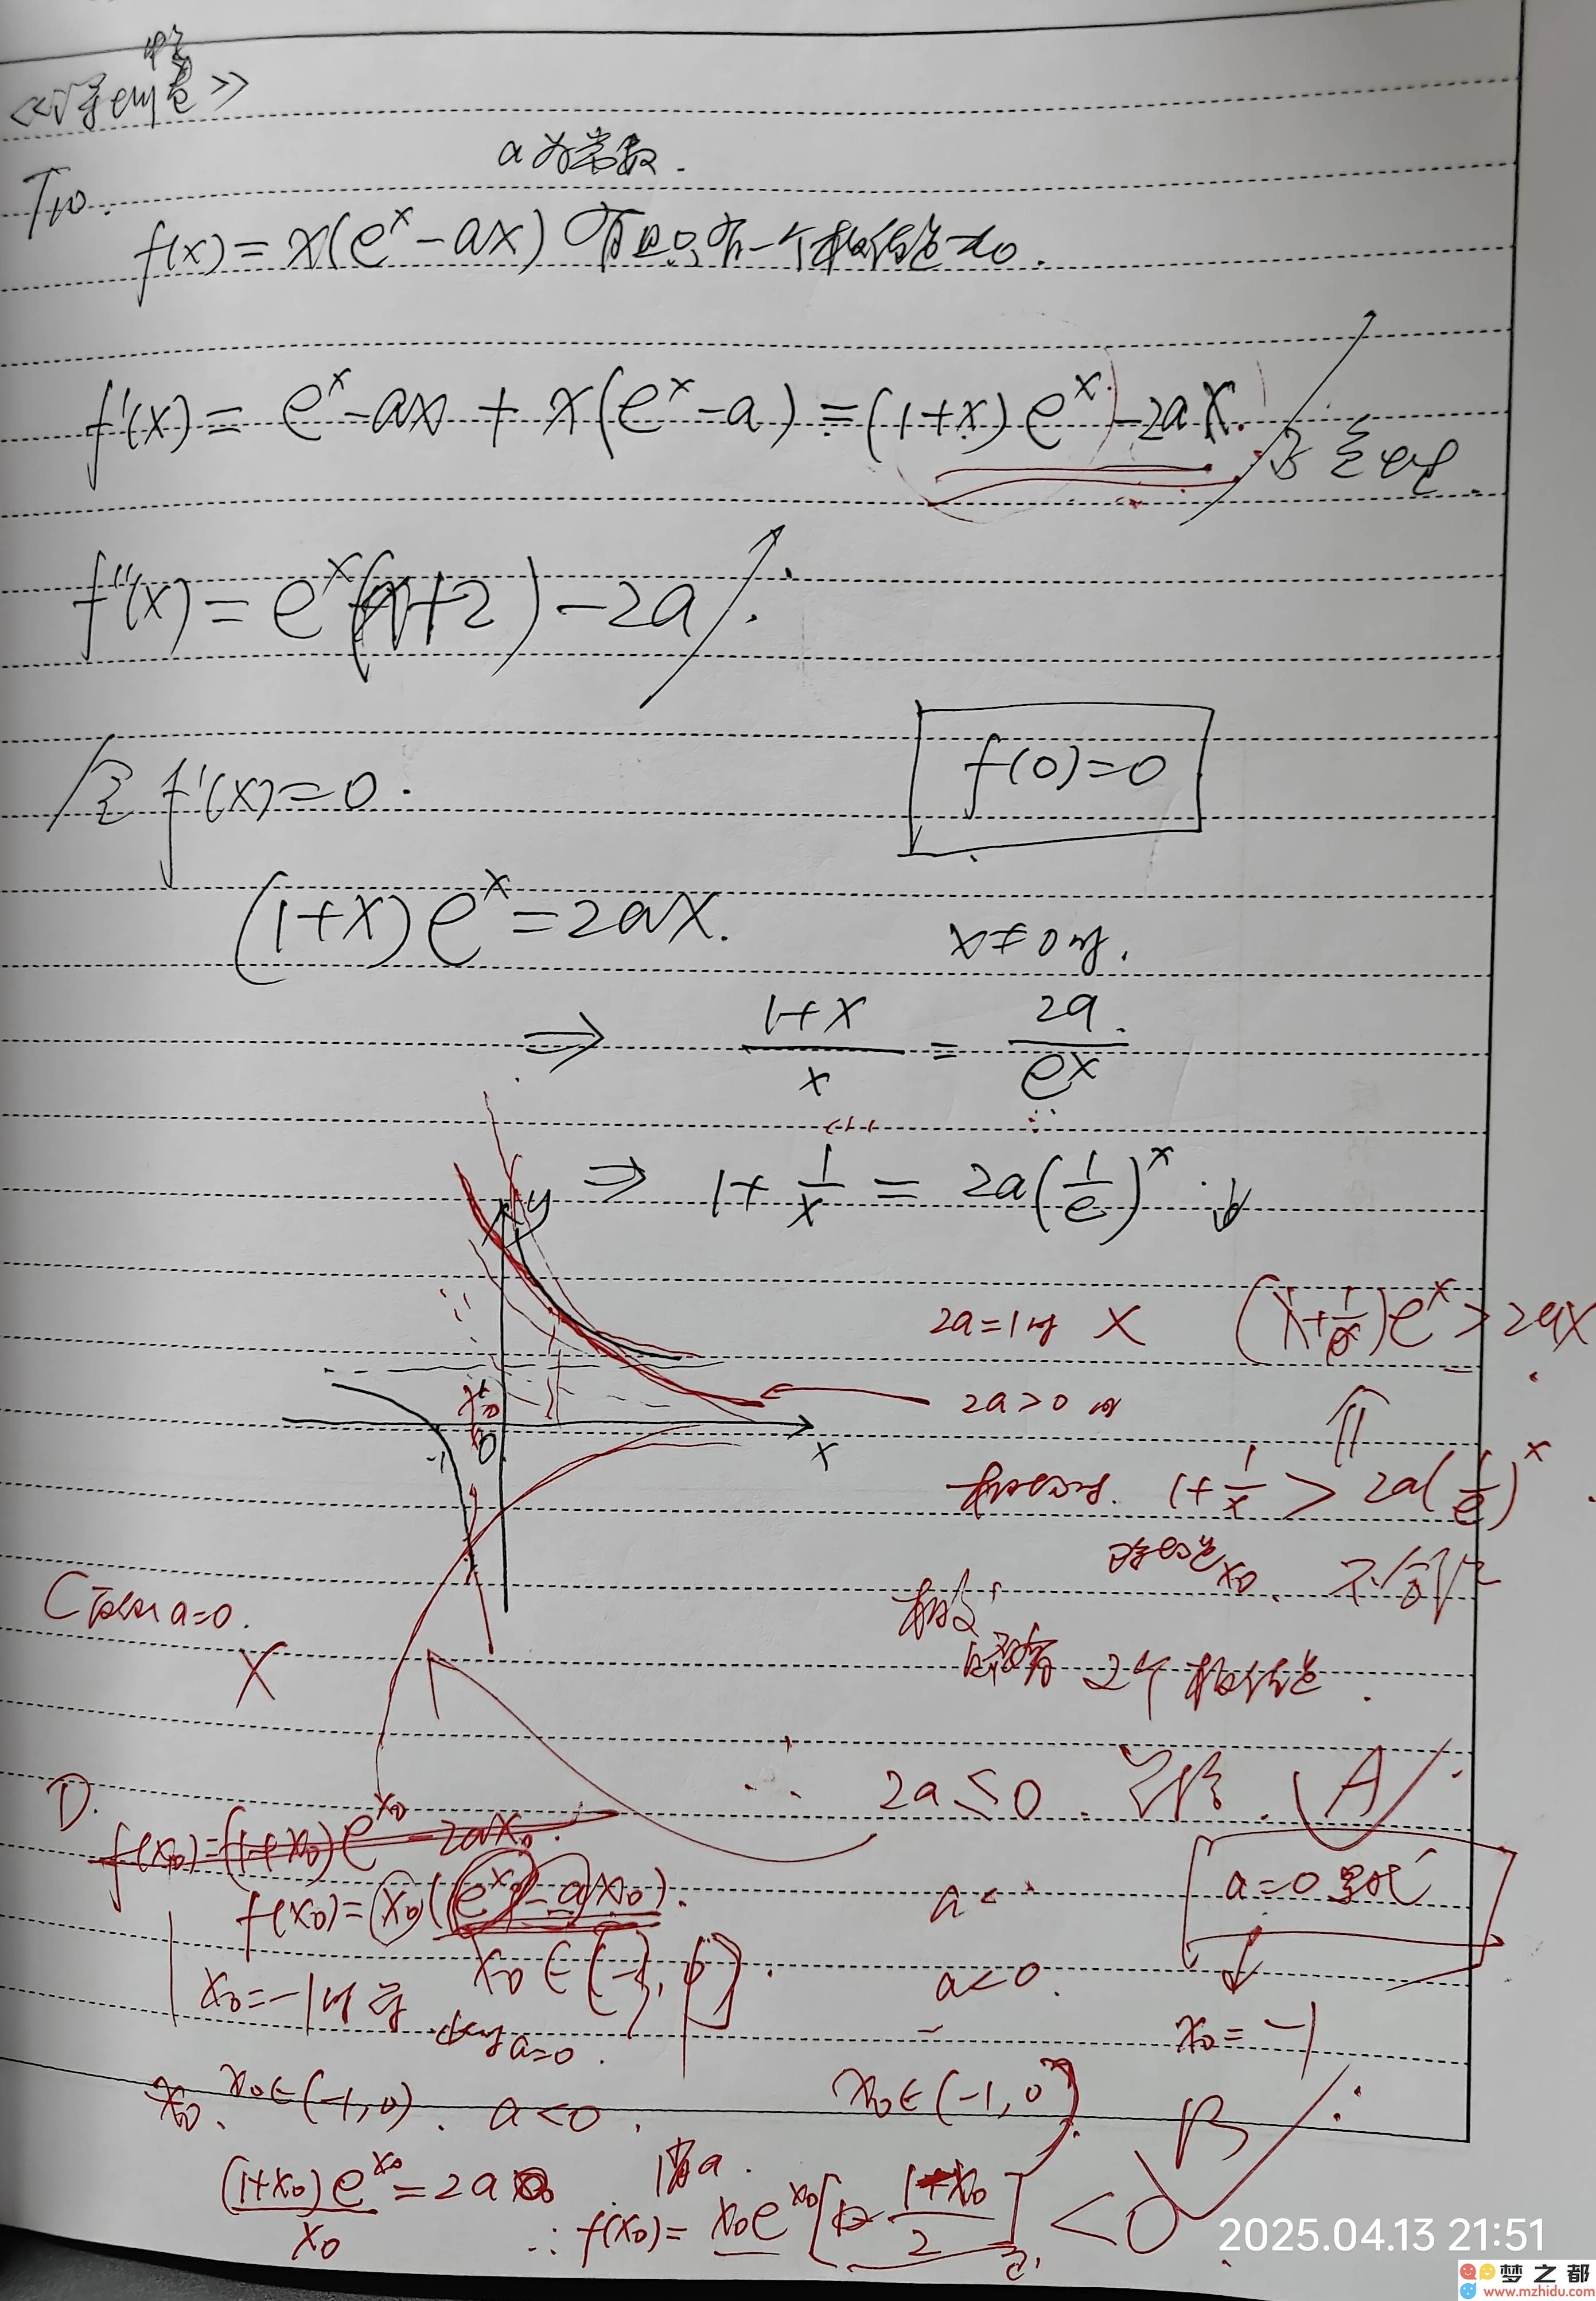 T10.
a为常数.
f(x)=x(eˣ-ax) 有且只有一个极值点x₀.
f'(x)= eˣ-ax + x(eˣ-a) =(1+x)eˣ-2ax.
f''(x)=eˣ(x+2)-2a
令 f'(x)=0.
f(0)=0
(1+x)eˣ=2ax.
x≠0时.
⇒ (1+x)/x = 2a/eˣ
⇒ 1+1/x = 2a(1/e)ˣ
y
x
0
-1
2a=1时 X
2a>0时
1+1/x > 2a(1/e)ˣ
2个极值点.
C a=0.
X
∴ 2a≤0. A
D.
f(x₀)=(1+x₀)e^x₀-2ax₀.
f(x₀)=x₀(e^x₀-ax₀).
a<
a=0
x₀=-1时
a=0.
a<0.
x₀=-1
x₀.
x₀∈(-1,0). a<0.
x₀∈(-1,0).
B
(1+x₀)e^x₀/x₀=2a
消a.
∴ f(x₀)= x₀e^x₀[1-(1+x₀)/2] <0
2025.04.13 21:51
梦之都
www.mzhidu.com